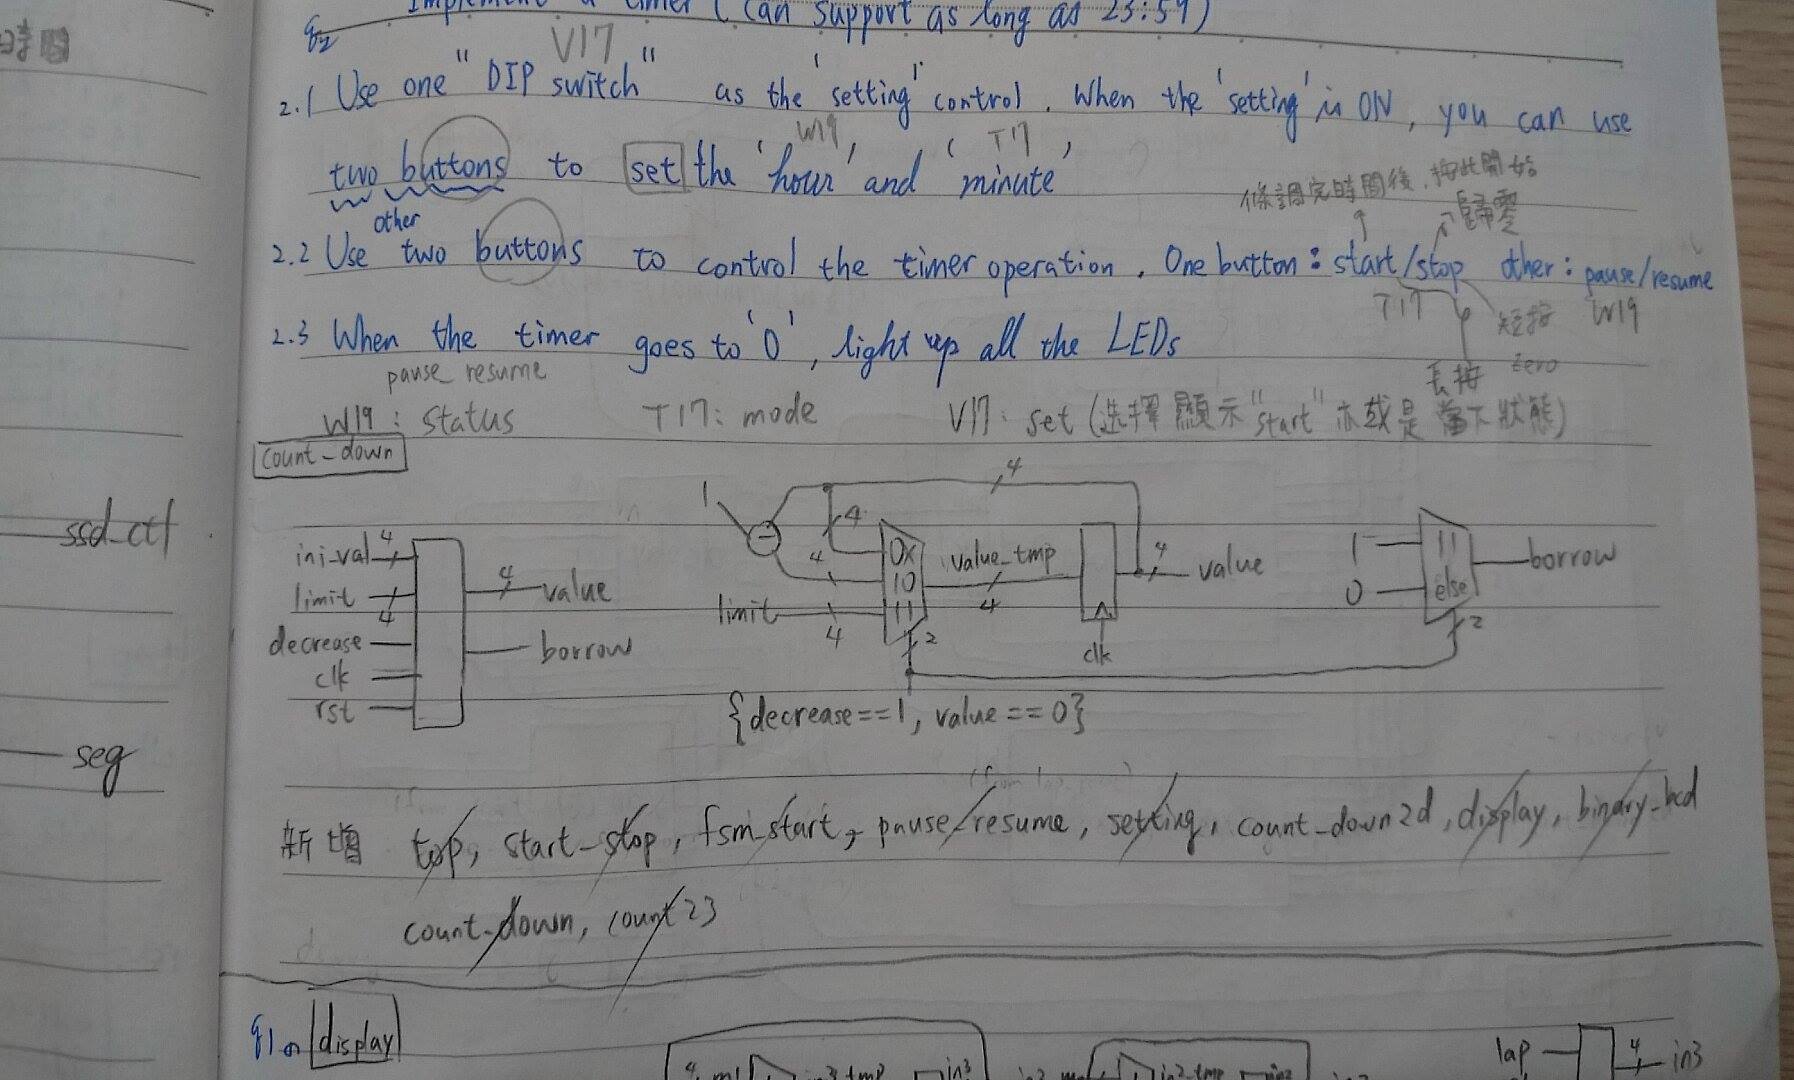 時間
ssd_ctl
seg
q2 Implement a timer (can support as long as 23:59)
V17
2.1 Use one "DIP switch" as the 'setting' control. When the 'setting' is ON, you can use
W19 T17
two buttons to set the 'hour' and 'minute'
條調完時間後,按此開始
歸零
other
2.2 Use two buttons to control the timer operation. One button: start/stop other: pause/resume
T17 短按 W19
2.3 When the timer goes to '0', light up all the LEDs
長按 zero
pause resume
W19: status T17: mode V17: set (選擇顯示"start"亦或是當下狀態)
count_down
ini_val 4
limit 4
decrease
clk
rst
4 value
borrow
1
4
4
4
0x
10
11
limit
4
2
value_tmp
4
clk
4 value
{decrease==1, value==0}
1
0
11
else
2
borrow
新增 top, start_stop, fsm_start, pause_resume, setting, count_down2d, display, binary_bcd
count_down, count23
q1 display
4 m1 in3_tmp in3
in2_tmp in2
lap 4 in3